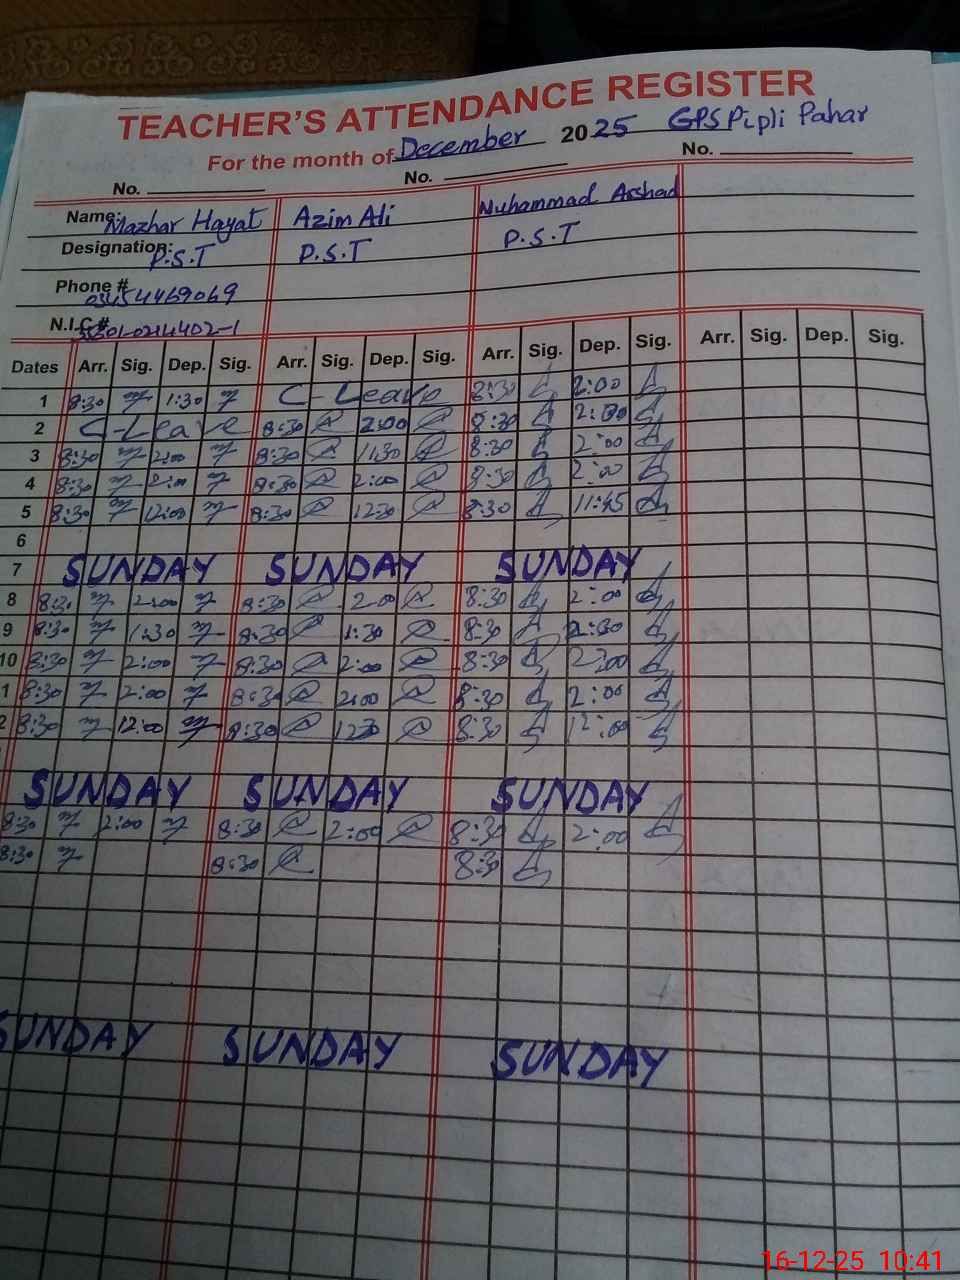 TEACHER'S ATTENDANCE REGISTER
For the month of December 2025 GPS Pipli Pahar
No. No. No.
Name: Mazhar Hayat Azim Ali Muhammad Arshad
Designation: P.S.T P.S.T P.S.T
Phone #
N.I.C #
Dates Arr. Sig. Dep. Sig. Arr. Sig. Dep. Sig. Arr. Sig. Dep. Sig. Arr. Sig. Dep. Sig.
1 8:30 1:30 C-Leave 8:30 2:00
2 C-Leave 8:30 2:00 8:30 2:00
3 8:30 2:00 8:30 11:30 8:30 2:00
4 8:30 2:00 8:30 2:00 8:30 2:00
5 8:30 12:00 8:30 1230 8:30 11:45
6
7 SUNDAY SUNDAY SUNDAY
8 8:30 2:00 8:30 2:00 8:30 2:00
9 8:30 1:30 8:30 1:30 8:30
10 8:30 2:00 8:30 2:00 8:30 2:00
1 8:30 2:00 8:30 2:00 8:30 2:00
2 8:30 12:00 8:30 1230 8:30 12:00
SUNDAY SUNDAY SUNDAY
8:30 2:00 8:30 2:00 8:30 2:00
8:30 8:30 8:30
SUNDAY SUNDAY SUNDAY
16-12-25 10:41